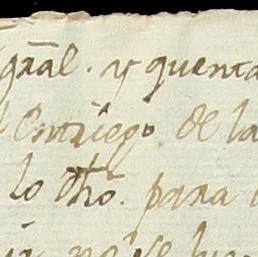 gral. y quenta
entriego de la
lo dho. para